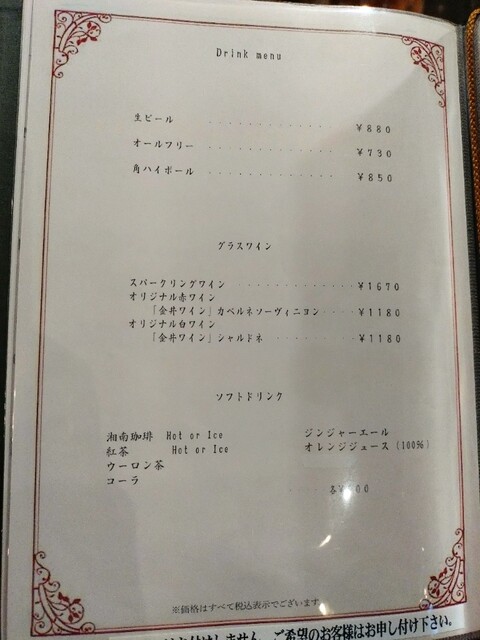 Drink menu
生ビール ・・・・・・・・・・・・・ ￥880
オールフリー ・・・・・・・・・・・・ ￥730
角ハイボール ・・・・・・・・・・・・ ￥850
グラスワイン
スパークリングワイン ・・・・・・・・・・・・ ￥1670
オリジナル赤ワイン
「金井ワイン」カベルネソーヴィニヨン ・・・ ￥1180
オリジナル白ワイン
「金井ワイン」シャルドネ ・・・・・・・ ￥1180
ソフトドリンク
湘南珈琲 Hot or Ice ジンジャーエール
紅茶 Hot or Ice オレンジジュース (100%)
ウーロン茶
コーラ
各￥
※価格はすべて税込表示でございます。
お付けしません。ご希望のお客様はお申し付け下さい。